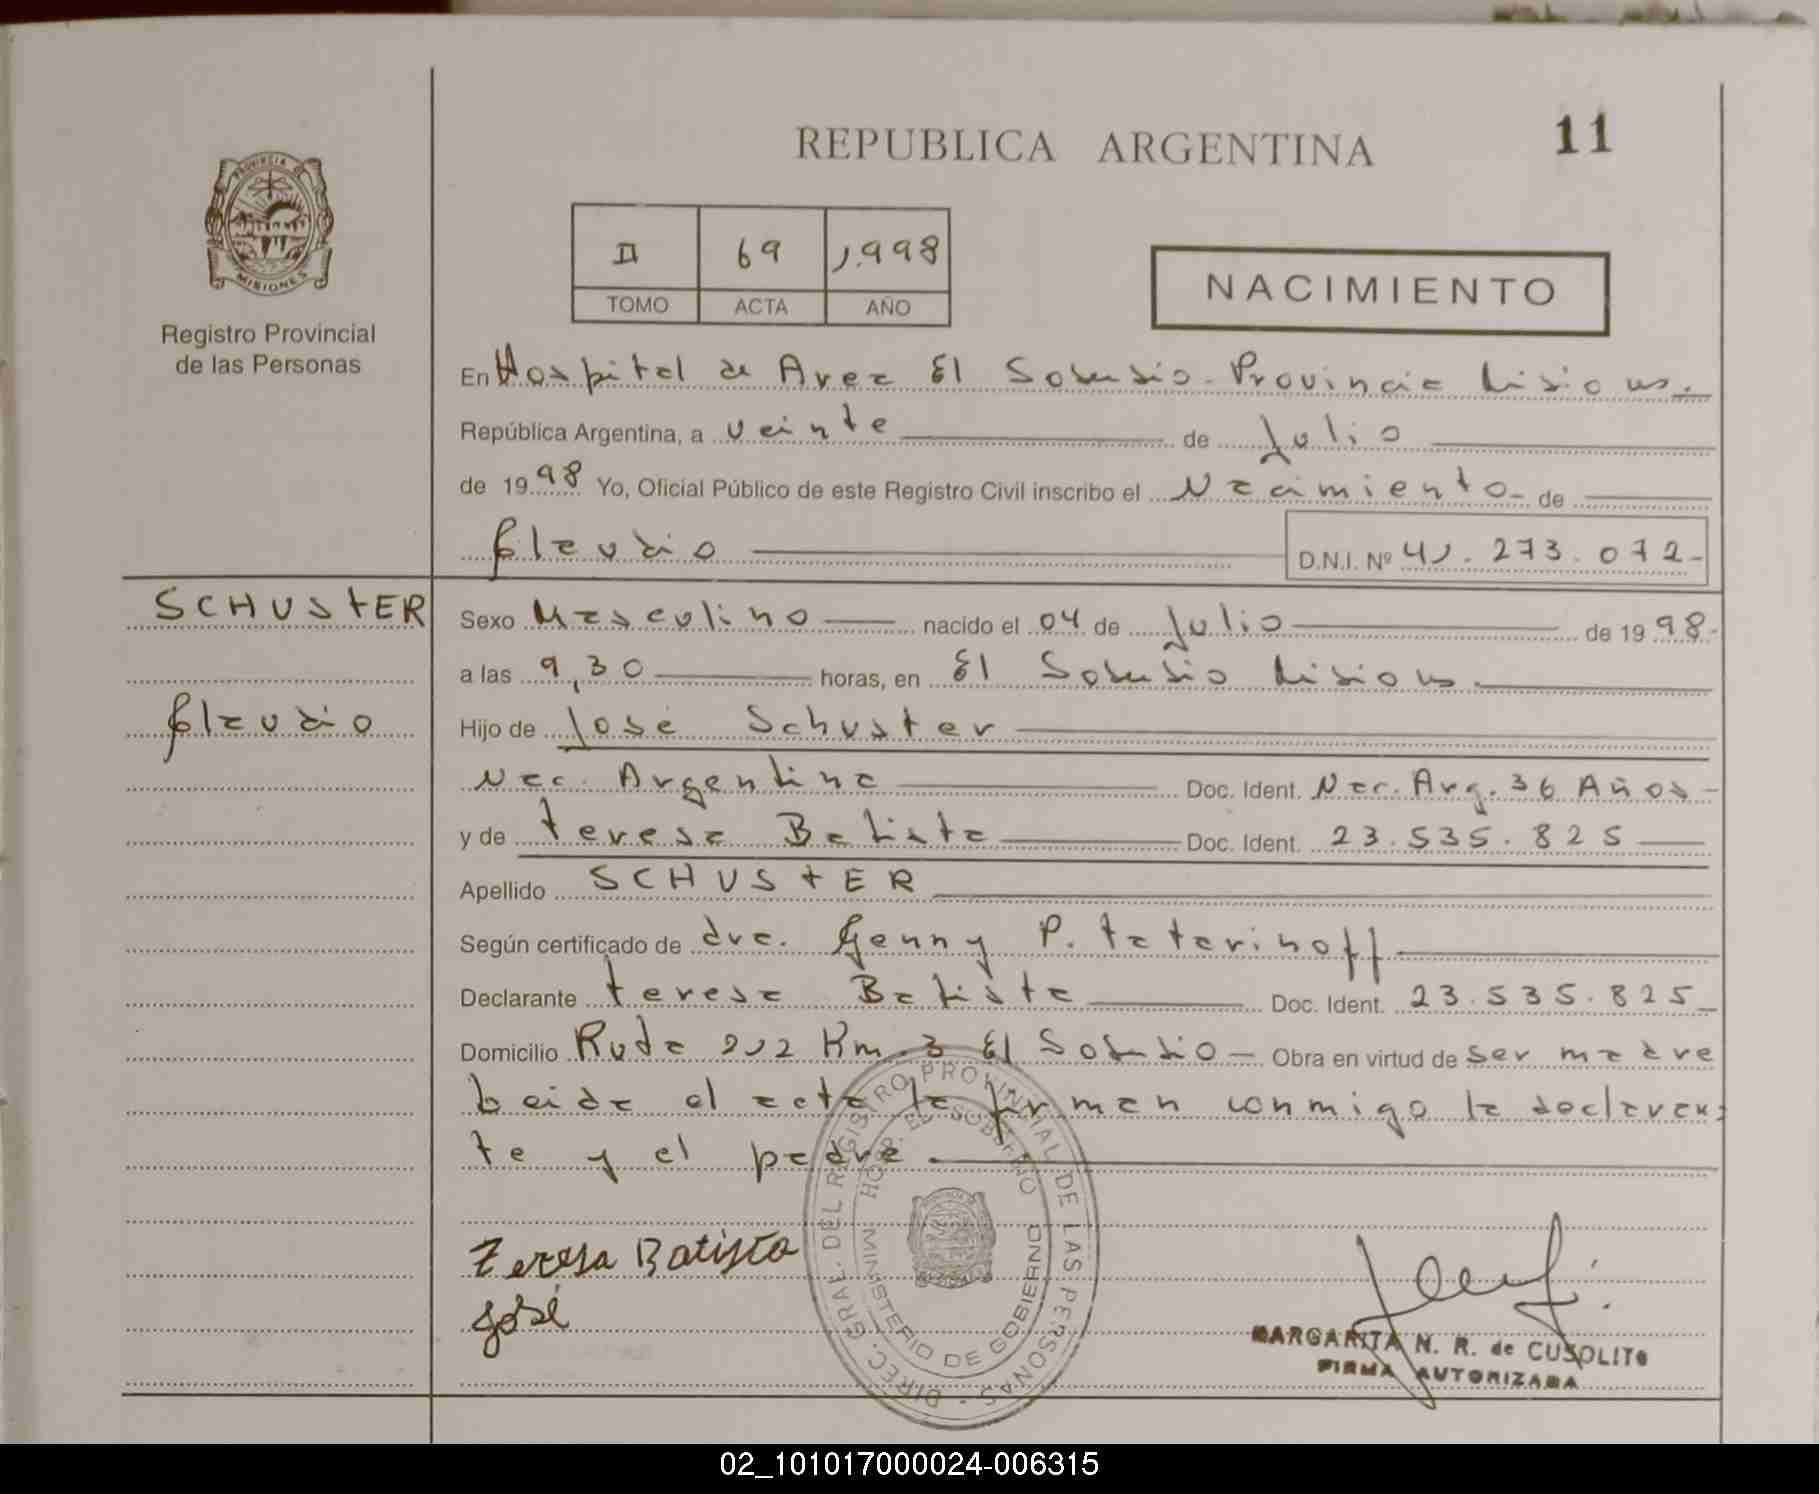 REPUBLICA ARGENTINA
11
PROVINCIA DE
MISIONES
Registro Provincial
de las Personas
II 69 1.998
TOMO ACTA AÑO
NACIMIENTO
En Hospital de Area El Soberbio. Provincia Misiones.
República Argentina, a veinte de Julio
de 1998 Yo, Oficial Público de este Registro Civil inscribo el Nacimiento de
Claudio
D.N.I. Nº 41.273.072-
SCHUSTER
Claudio
Sexo Masculino nacido el 04 de Julio de 1998.
a las 9,30 horas, en El Soberbio Misiones.
Hijo de José Schuster
Nac. Argentina Doc. Ident. Nac. Arg. 36 Años
y de Teresa Batista Doc. Ident. 23.535.825
Apellido SCHUSTER
Según certificado de dra. Genny P. Tatarinoff
Declarante Teresa Batista Doc. Ident. 23.535.825
Domicilio Ruta 212 Km. 3 El Soberbio Obra en virtud de ser madre
Leida el acta la firman conmigo la declaran
te y el padre.
Teresa Batista
José
DIREC. GRAL. DEL REGISTRO PROVINCIAL DE LAS PERSONAS
HOSP. EL SOBERBIO
MINISTERIO DE GOBIERNO
MARGARITA N. R. de CUSOLITO
FIRMA AUTORIZADA
02_101017000024-006315